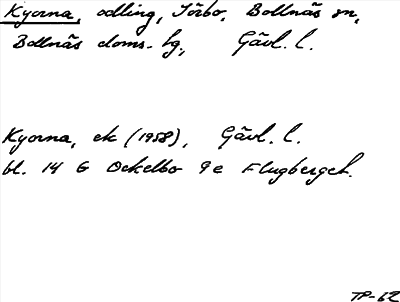 Kyorna, odling, Jörbo, Bollnäs sn,
Bollnäs doms. hg, Gävl. l.
Kyorna, ek (1958), Gävl. l.
bl. 14 G Ockelbo 9e Flugberget.
TP-62